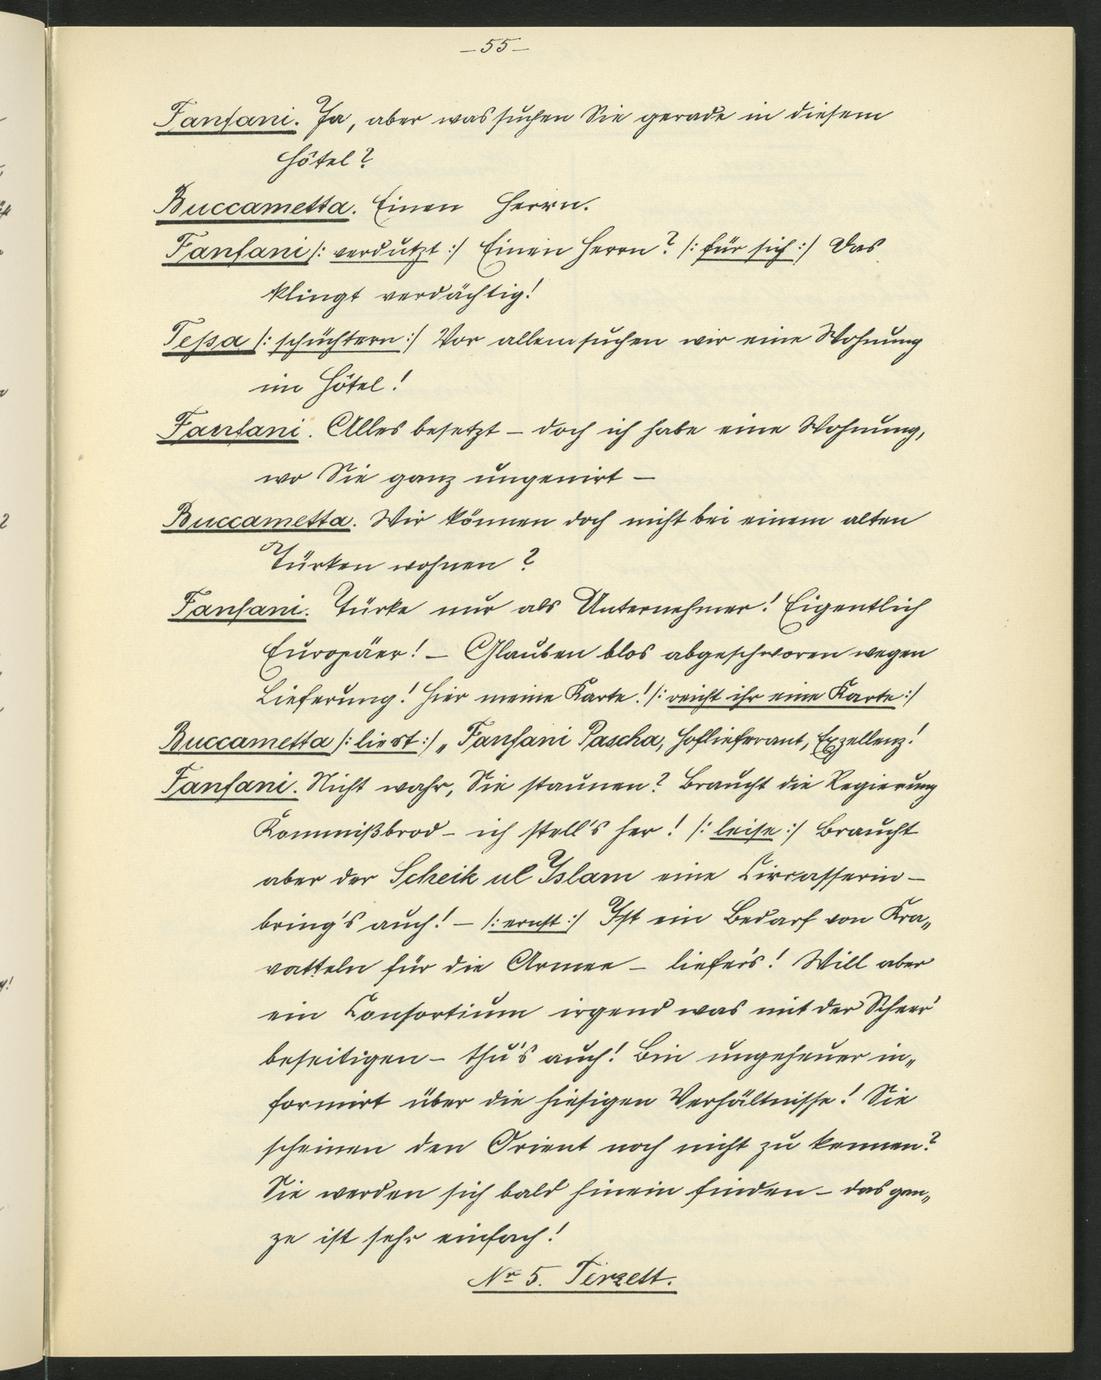 –55–
Fanfani. Ja, aber was suchen Sie gerade in diesem
Hôtel?
Buccametta. Einen Herrn.
Fanfani /: verdutzt :/ Einen Herrn? /: für sich :/ Das
klingt verdächtig!
Teßa /: schüchtern :/ Vor allem suchen wir eine Wohnung
im Hôtel!
Fanfani. Alles besetzt – doch ich habe eine Wohnung,
wo Sie ganz ungenirt –
Buccametta. Wir können doch nicht bei einem alten
Türken wohnen?
Fanfani. Türke nur als Unternehmer! Eigentlich
Europäer! – Glauben blos abgeschworen wegen
Lieferung! Hier meine Karte! /: reicht ihr eine Karte :/
Buccametta /: liest :/ „Fanfani Pascha, Hoflieferant, Exzellenz!
Fanfani. Nicht wahr, Sie staunen? Braucht die Regierung
Kommißbrod – ich stell's her! /: leise :/ Braucht
aber der Scheik ul Islam eine Circasserin –
bring's auch! – /: ernst :/ Ist ein Bedarf von Kra„
vatteln für die Armee – liefer's! Will aber
ein Consortium irgend was mit der Scheer'
beseitigen – thu's auch! Bin ungeheuer in„
formirt über die hiesigen Verhältnisse! Sie
scheinen den Orient noch nicht zu kennen?
Sie werden sich bald hinein finden – das gan„
ze ist sehr einfach!
Nr 5. Terzett.